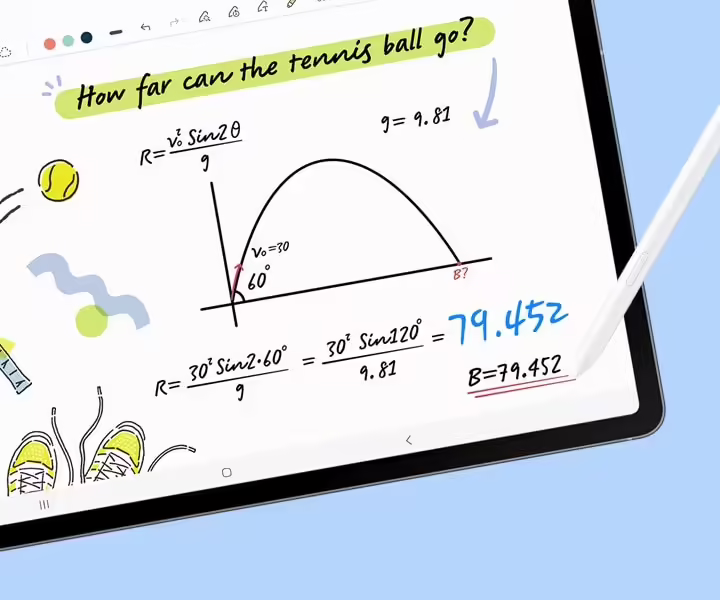 How far can the tennis ball go?
R = v₀² Sin2θ / g
g = 9.81
v₀=30
60°
B?
R = 30² Sin2·60° / g = 30² Sin120° / 9.81 = 79.452
B=79.452